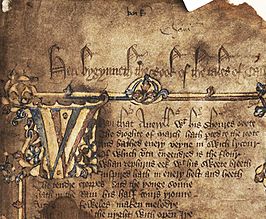 Here bygynneth the Book of the tales of Caun
Whan that Aueryll wt his shoures soote
The droghte of March hath perced to the roote
And bathed euery veyne in swich lycour
Of which vertu engendred is the flour
Whan zephirus eek wt his sweete breeth
Inspired hath in euery holt and heeth
The tendre croppes and the yonge sonne
Hath in the Ram his half cours yronne
foweles maken melodye
al the nyght with open Iye